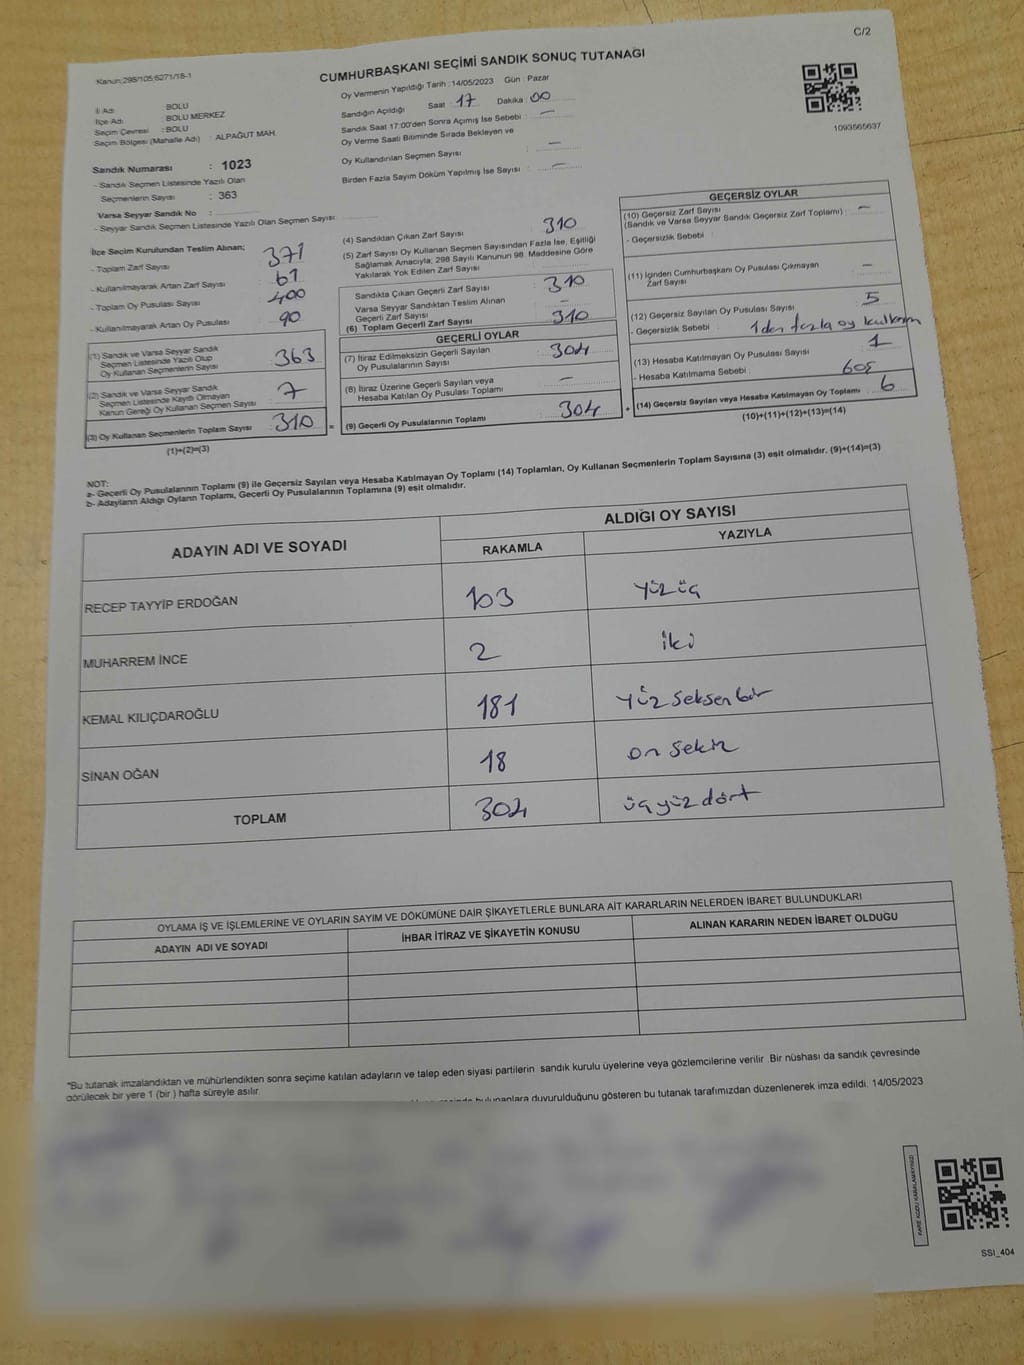 C/2
Kanun:298/105:6271/18-1
CUMHURBAŞKANI SEÇİMİ SANDIK SONUÇ TUTANAĞI
Oy Vermenin Yapıldığı Tarih : 14/05/2023 Gün : Pazar
İl Adı : BOLU
İlçe Adı : BOLU MERKEZ
Seçim Çevresi : BOLU
Seçim Bölgesi (Mahalle Adı) : ALPAĞUT MAH.
Sandık Numarası : 1023
- Sandık Seçmen Listesinde Yazılı Olan
Seçmenlerin Sayısı : 363
Varsa Seyyar Sandık No :
- Seyyar Sandık Seçmen Listesinde Yazılı Olan Seçmen Sayısı:
Sandığın Açıldığı Saat : 17 Dakika : 00
Sandık Saat 17:00'den Sonra Açımış İse Sebebi : —
Oy Verme Saati Bitiminde Sırada Bekleyen ve
Oy Kullandırılan Seçmen Sayısı : —
Birden Fazla Sayım Döküm Yapılmış İse Sayısı : —
1093565637
İlçe Seçim Kurulundan Teslim Alınan;
- Toplam Zarf Sayısı : 371
- Kullanılmayarak Artan Zarf Sayısı : 61
- Toplam Oy Pusulası Sayısı : 400
- Kullanılmayarak Artan Oy Pusulası : 90
(1) Sandık ve Varsa Seyyar Sandık
Seçmen Listesinde Yazılı Olup
Oy Kullanan Seçmenlerin Sayısı : 363
(2) Sandık ve Varsa Seyyar Sandık
Seçmen Listesinde Kayıtlı Olmayan
Kanun Gereği Oy Kullanan Seçmen Sayısı : 7
(3) Oy Kullanan Seçmenlerin Toplam Sayısı : 310
(1)+(2)=(3)
(4) Sandıktan Çıkan Zarf Sayısı : 310
(5) Zarf Sayısı Oy Kullanan Seçmen Sayısından Fazla İse, Eşitliği
Sağlamak Amacıyla; 298 Sayılı Kanunun 98. Maddesine Göre
Yakılarak Yok Edilen Zarf Sayısı :
Sandıkta Çıkan Geçerli Zarf Sayısı : 310
Varsa Seyyar Sandıktan Teslim Alınan
Geçerli Zarf Sayısı : —
(6) Toplam Geçerli Zarf Sayısı : 310
GEÇERLİ OYLAR
(7) İtiraz Edilmeksizin Geçerli Sayılan
Oy Pusulalarının Sayısı : 304
(8) İtiraz Üzerine Geçerli Sayılan veya
Hesaba Katılan Oy Pusulası Toplamı : —
(9) Geçerli Oy Pusulalarının Toplamı : 304
GEÇERSİZ OYLAR
(10) Geçersiz Zarf Sayısı
(Sandık ve Varsa Seyyar Sandık Geçersiz Zarf Toplamı) : —
- Geçersizlik Sebebi :
(11) İçinden Cumhurbaşkanı Oy Pusulası Çıkmayan
Zarf Sayısı : —
(12) Geçersiz Sayılan Oy Pusulası Sayısı : 5
- Geçersizlik Sebebi : 1den fazla oy kullanım
(13) Hesaba Katılmayan Oy Pusulası Sayısı : 1
- Hesaba Katılmama Sebebi : boş
(14) Geçersiz Sayılan veya Hesaba Katılmayan Oy Toplamı : 6
(10)+(11)+(12)+(13)=(14)
NOT:
a- Geçerli Oy Pusulalarının Toplamı (9) ile Geçersiz Sayılan veya Hesaba Katılmayan Oy Toplamı (14) Toplamları, Oy Kullanan Seçmenlerin Toplam Sayısına (3) eşit olmalıdır. (9)+(14)=(3)
b- Adayların Aldığı Oyların Toplamı, Geçerli Oy Pusulalarının Toplamına (9) eşit olmalıdır.
ADAYIN ADI VE SOYADI
ALDIĞI OY SAYISI
RAKAMLA YAZIYLA
RECEP TAYYİP ERDOĞAN 103 yüz üç
MUHARREM İNCE 2 iki
KEMAL KILIÇDAROĞLU 181 yüz seksen bir
SİNAN OĞAN 18 on sekiz
TOPLAM 304 üç yüz dört
OYLAMA İŞ VE İŞLEMLERİNE VE OYLARIN SAYIM VE DÖKÜMÜNE DAİR ŞİKAYETLERLE BUNLARA AİT KARARLARIN NELERDEN İBARET BULUNDUKLARI
ADAYIN ADI VE SOYADI İHBAR İTİRAZ VE ŞİKAYETİN KONUSU ALINAN KARARIN NEDEN İBARET OLDUĞU
*Bu tutanak imzalandıktan ve mühürlendikten sonra seçime katılan adayların ve talep eden siyasi partilerin sandık kurulu üyelerine veya gözlemcilerine verilir .Bir nüshası da sandık çevresinde
görülecek bir yere 1 (bir ) hafta süreyle asılır.
bulunanlara duyurulduğunu gösteren bu tutanak tarafımızdan düzenlenerek imza edildi. 14/05/2023
KARE KODU KARALAMAYINIZ!
SSI_404